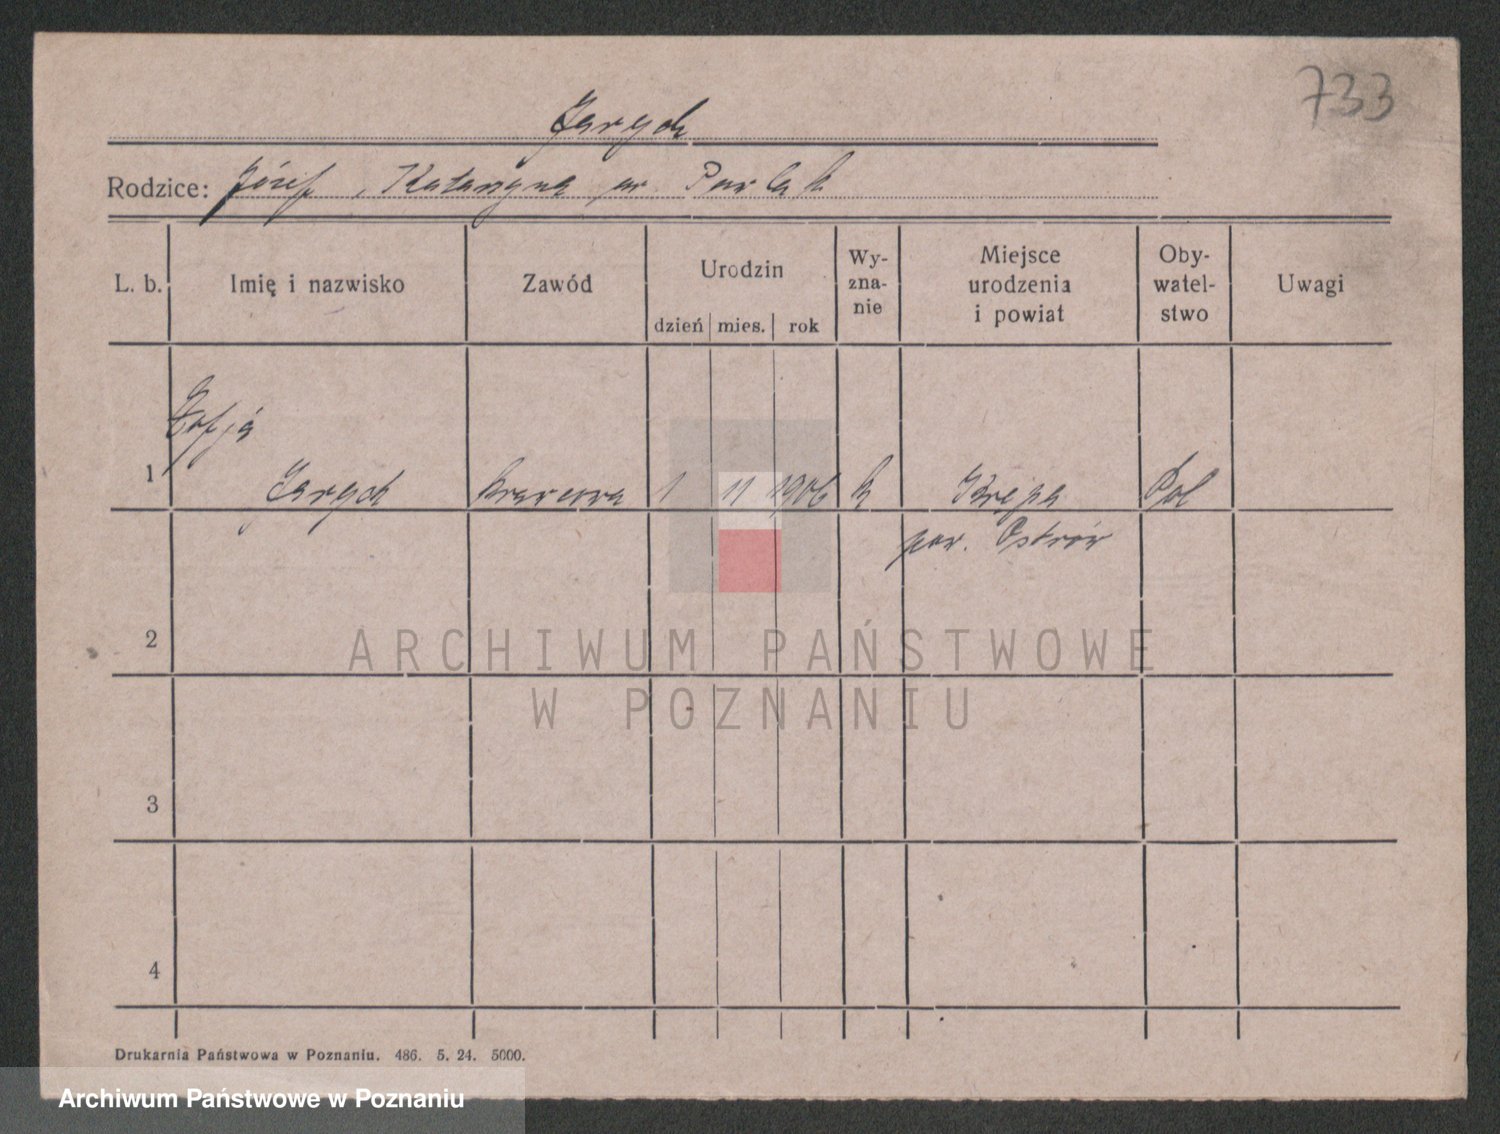 733
Jarych
Rodzice: Józef, Katarzyna ur. Pawlak
L. b. Imię i nazwisko Zawód Urodzin dzień mies. rok Wy-zna-nie Miejsce urodzenia i powiat Oby-watel-stwo Uwagi
Zofja
1 Jarych krawcowa 1 11 1906 k Krępa Pol
pow. Ostrów
2
ARCHIWUM PAŃSTWOWE
W POZNANIU
3
4
Drukarnia Państwowa w Poznaniu. 486. 5. 24. 5000.
Archiwum Państwowe w Poznaniu